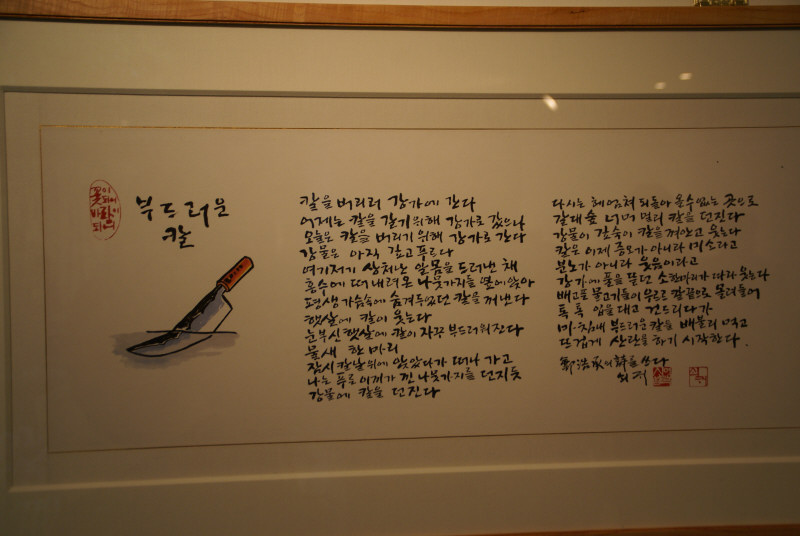 꽃이
되어
바람이
되어
부드러운
칼
칼을 버리러 강가에 간다
어제는 칼을 갈기 위해 강가로 갔으나
오늘은 칼을 버리기 위해 강가로 간다
강물은 아직 깊고 푸르다
여기저기 상처난 알몸을 드러낸 채
홍수에 떠내려온 나뭇가지들 옆에 앉아
평생 가슴속에 숨겨두었던 칼을 꺼낸다
햇살에 칼이 웃는다
눈부신 햇살에 칼이 자꾸 부드러워진다
물새 한 마리
잠시 칼날 위에 앉았다가 떠나가고
나는 푸른 이끼가 낀 나뭇가지를 던지듯
강물에 칼을 던진다
다시는 헤엄쳐 되돌아 올 수 없는 곳으로
갈대숲 너머 멀리 칼을 던진다
강물이 깊숙이 칼을 껴안고 웃는다
칼은 이제 증오가 아니라 미소라고
분노가 아니라 웃음이라고
강가에 풀을 뜯던 소 한마리가 따라 웃는다
배고픈 물고기들이 우르르 칼끝으로 몰려들어
톡톡 입을 대고 건드리다가
마침내 부드러운 칼을 배불리 먹고
뜨겁게 산란을 하기 시작한다.
鄭浩承의 詩를 쓰다